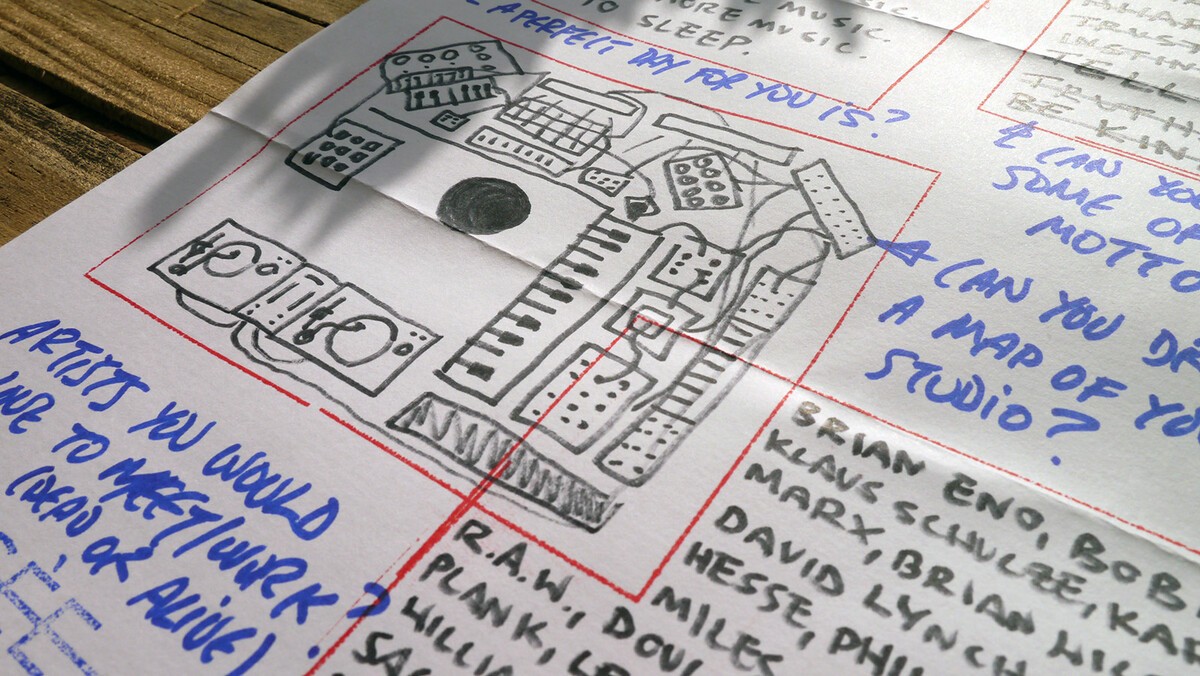 MUSIC.
MORE MUSIC.
TO SLEEP.
A PERFECT DAY FOR YOU IS?
TRUST
INSTIN
TELL
TRUTH
BE KIN
CAN YOU
SOME OF
MOTTO
CAN YOU DR
A MAP OF YO
STUDIO?
ARTISTS YOU WOULD
LIKE TO MEET/WORK
(DEAD OR ALIVE)?
BRIAN ENO, BOB
KLAUS SCHULZE, KAR
MARX, BRIAN
DAVID LYNCH
HESSE, PHIL
MILES
R.A.W., DOU
PLANK, LE
WILLIA
SAG